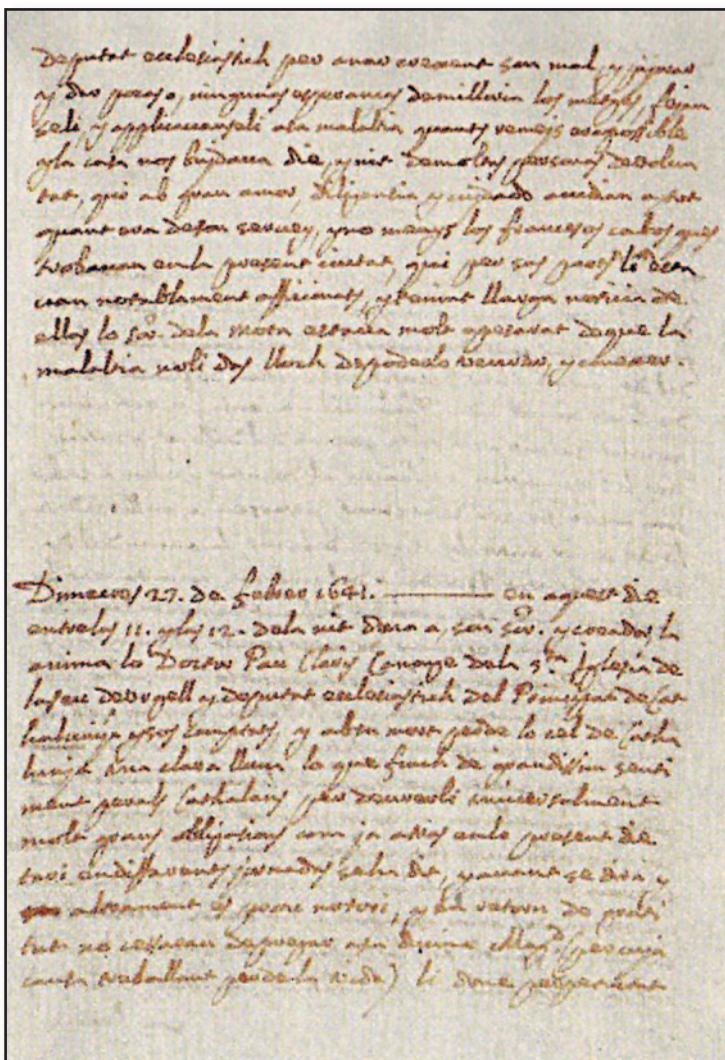 Deputat ecclesiastich per anar crexent son mal, y pijorar
y dar poras o, ningunas esperansas de milloria los metges, fejan
seli, y applicavanseli a sa malaltia quants remeis era possible
y la casa nos buydava die, y nit de moltas personas de volun
tat, qui ab gran amor, diligentia y cuydado acudian a tot
quant era de son servey, y no menys los francesos cabos ques
trobavan en la present ciutat, qui per sas parts li esta
van notablament afficionats, y tenint llarga noticia de
ellas lo sor. de la Mota estava molt apesarat de que la
malaltia noli das lloch de poderlo veurer, y conexer.
Dimecres 27. de febrer 1641. en aquest die
entre las 11. y las 12. de la nit dona a, son sor. y creador la
anima lo Doctor Pau Claris Canonge de la sta. Iglesia de
la seu de Urgell y deputat ecclesiastich del Principat de Cat
halunya y sos Comptats, y ab sa mort perde lo cel de Catha
lunya una clara llum lo que fonch de grandissim senti
ment per als Cathalans per deureli universalment
molt grans obligations com ja atras en lo present die
tari en differents jornadas se ha dit, y avant se dira y
altrament es prou notori, y en retorn de grati
tut no cessaran de pregar a sa divina Magd. (per cuya
causa treballant perde la vida) li done perpetuament